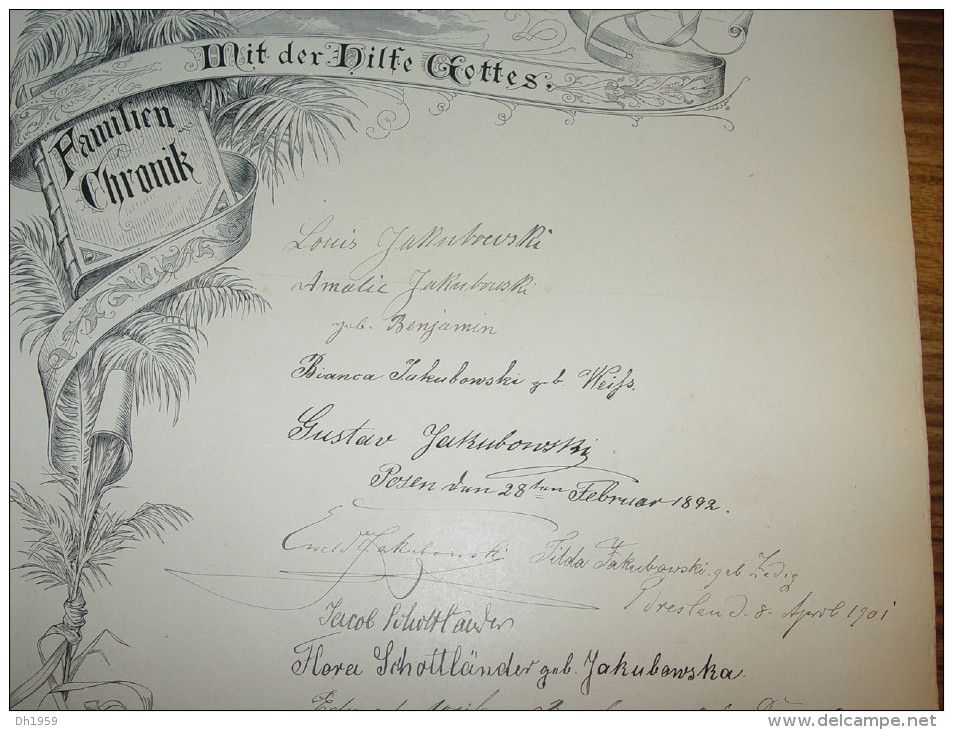 Mit der Hilfe Gottes.
Familien
Chronik
Louis Jakubowski
Amalie Jakubowski
geb. Benjamin
Bianca Jakubowski geb. Weiß.
Gustav Jakubowski
Posen den 28ten Februar 1892.
Jakubowski Tilda Jakubowski. geb
Breslau d. 8. April 1901
Jacob Schottlaender
Flora Schottländer geb. Jakubowska.
Dh1959
delcampe.net